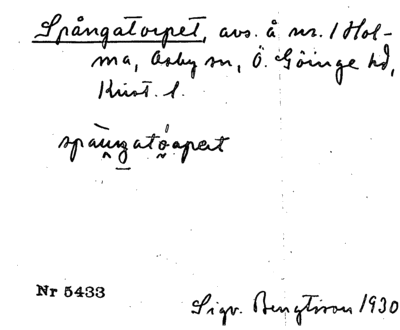 Spångatorpet, avs. å nr. 1 Hol-
ma, Osby sn, Ö. Göinge hd,
Krist. l.
spàngatóapet
Nr 5433
Sigv. Bengtsson 1930